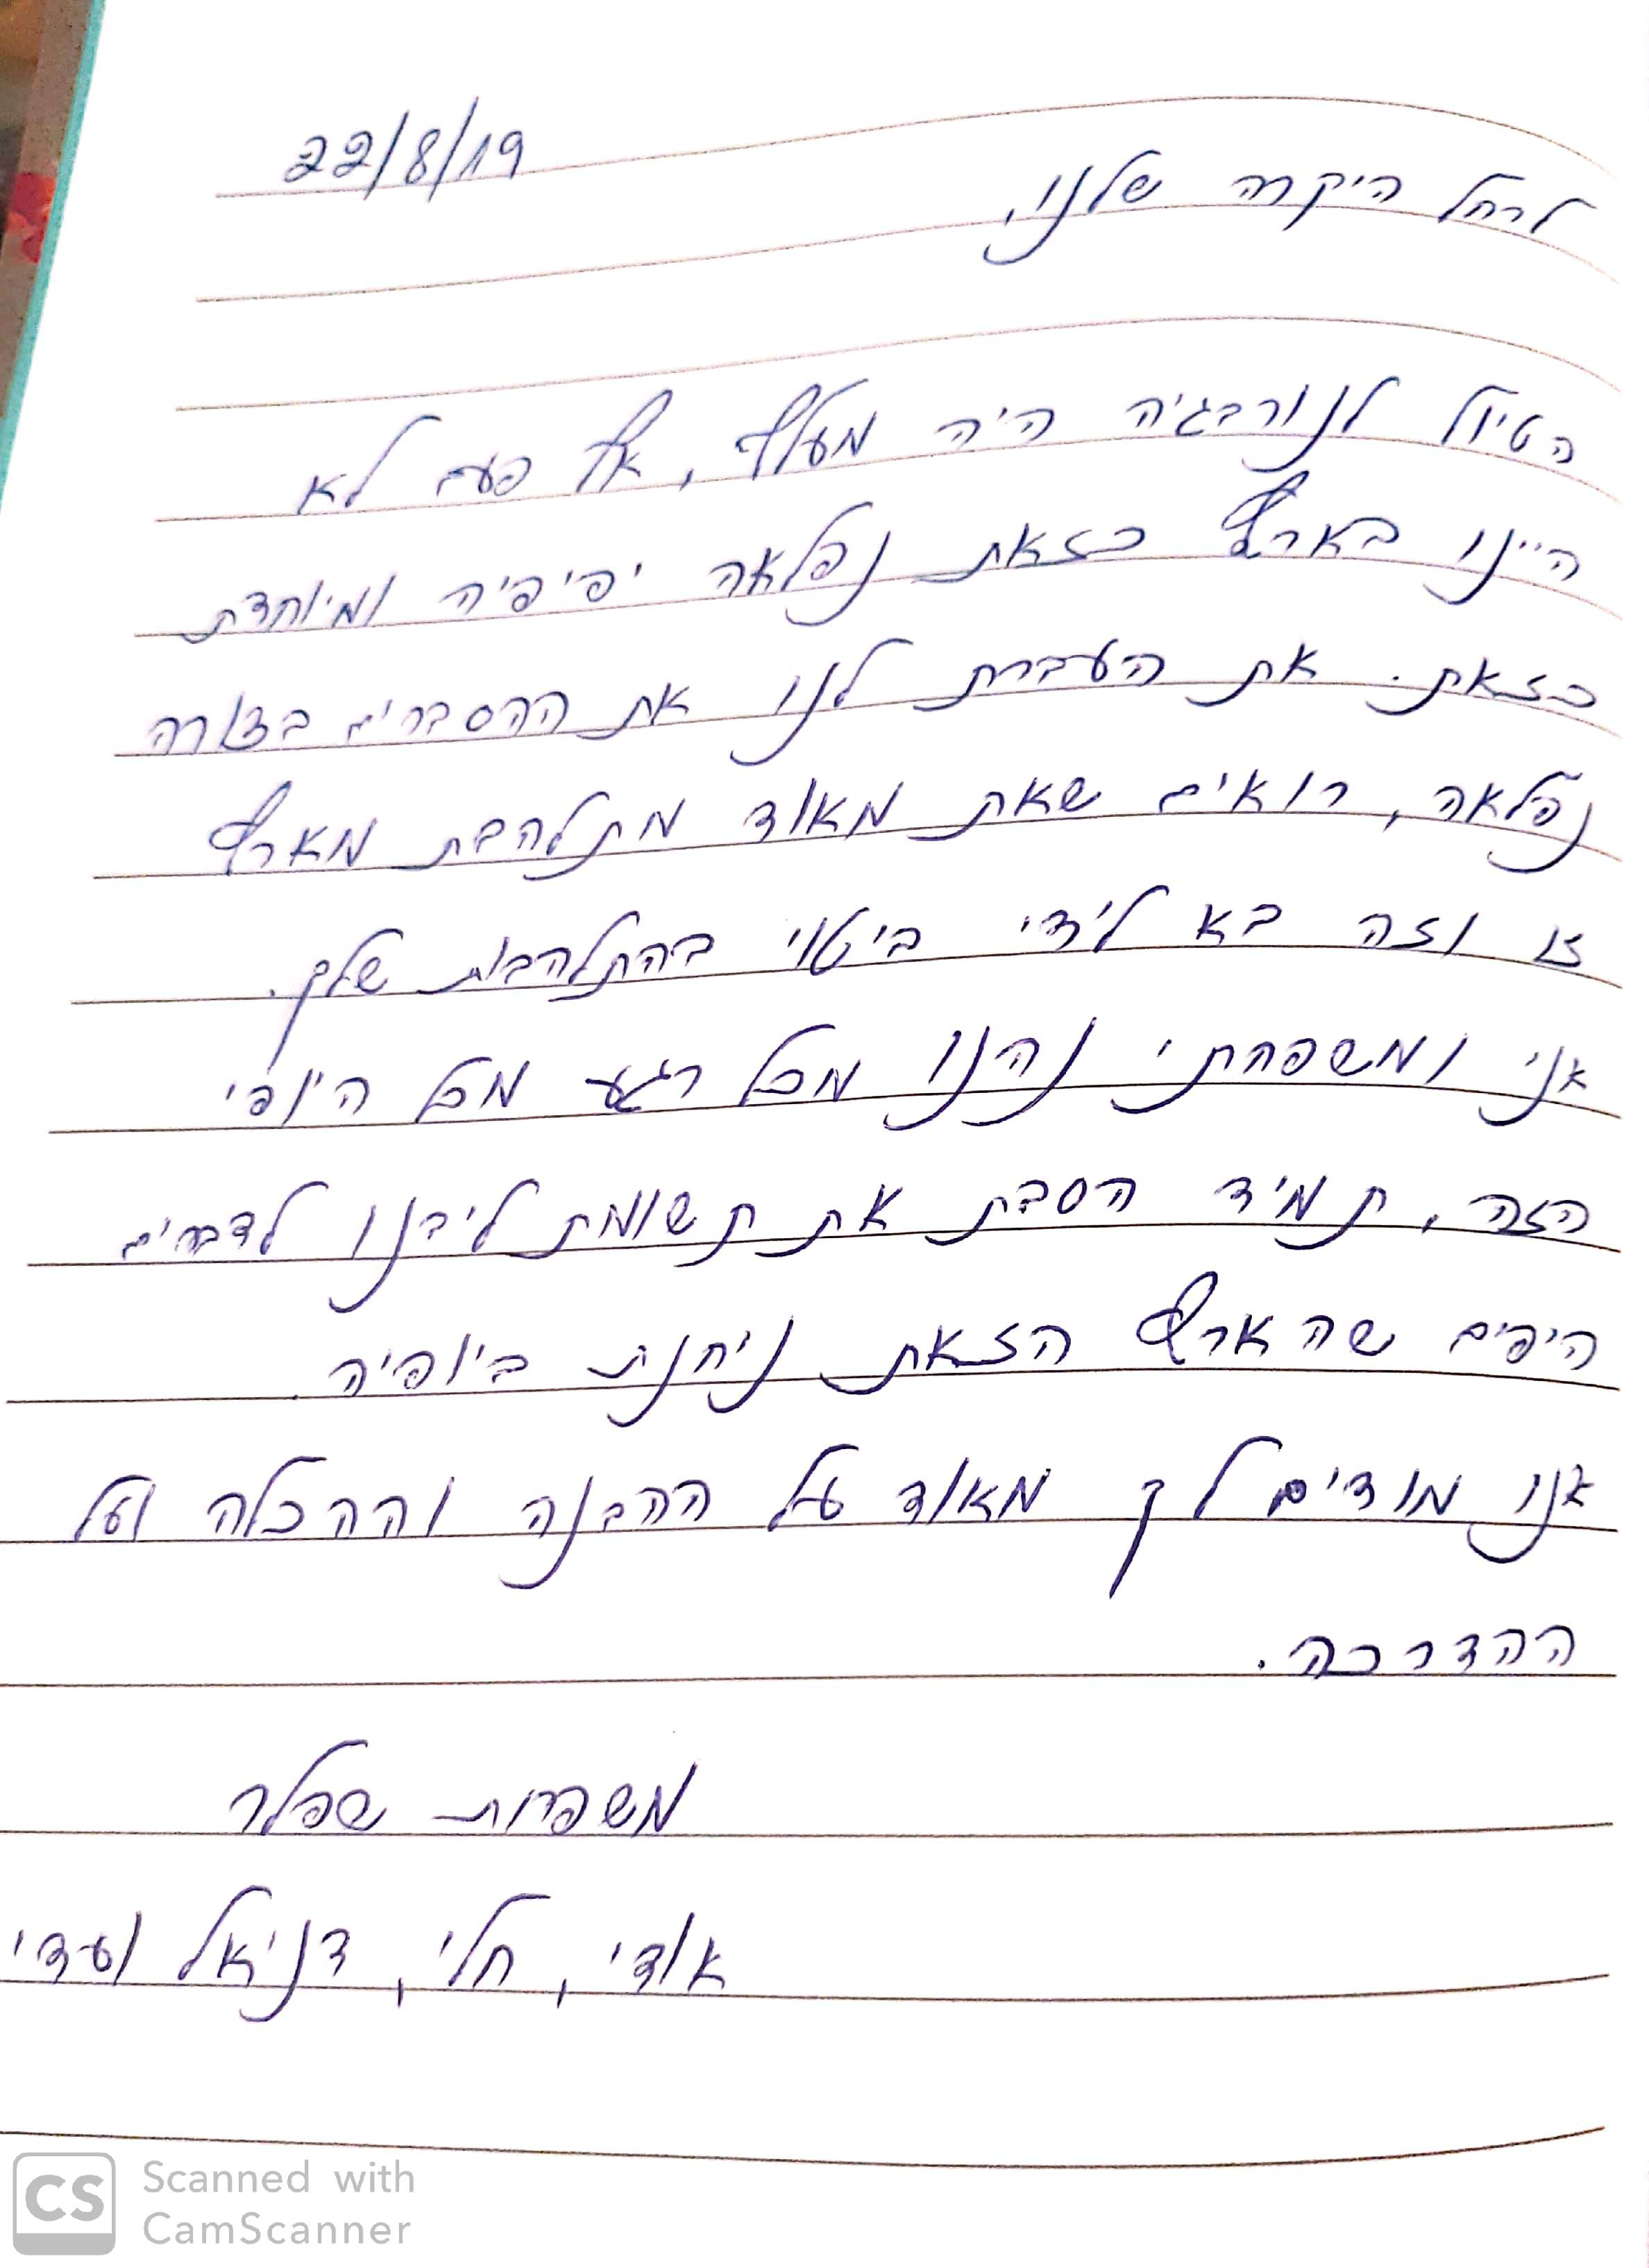 22/8/19
לרחל היקרה שלנו,
הטיול לנורבגיה היה מעלף, אף פעם לא
היינו בארץ כזאת נפלאה יפיפיה ומיוחדת
כזאת. את העברת לנו את ההסברים בצורה
נפלאה, רואים שאת מאוד מתלהבת מארץ
זו וזה בא לידי ביטוי בהתלהבות שלך.
אני ומשפחתי נהנו מכל רגע מכל היופי
הזה, תמיד הסבת את תשומת ליבנו לדברים
היפים שהארץ הזאת ניחנת ביופיה.
אנו מודים לך מאוד על ההבנה וההכלה ועל
ההדרכה.
משפחות שפלר
אודי, חלי, דניאל ועדי
CS Scanned with
CamScanner